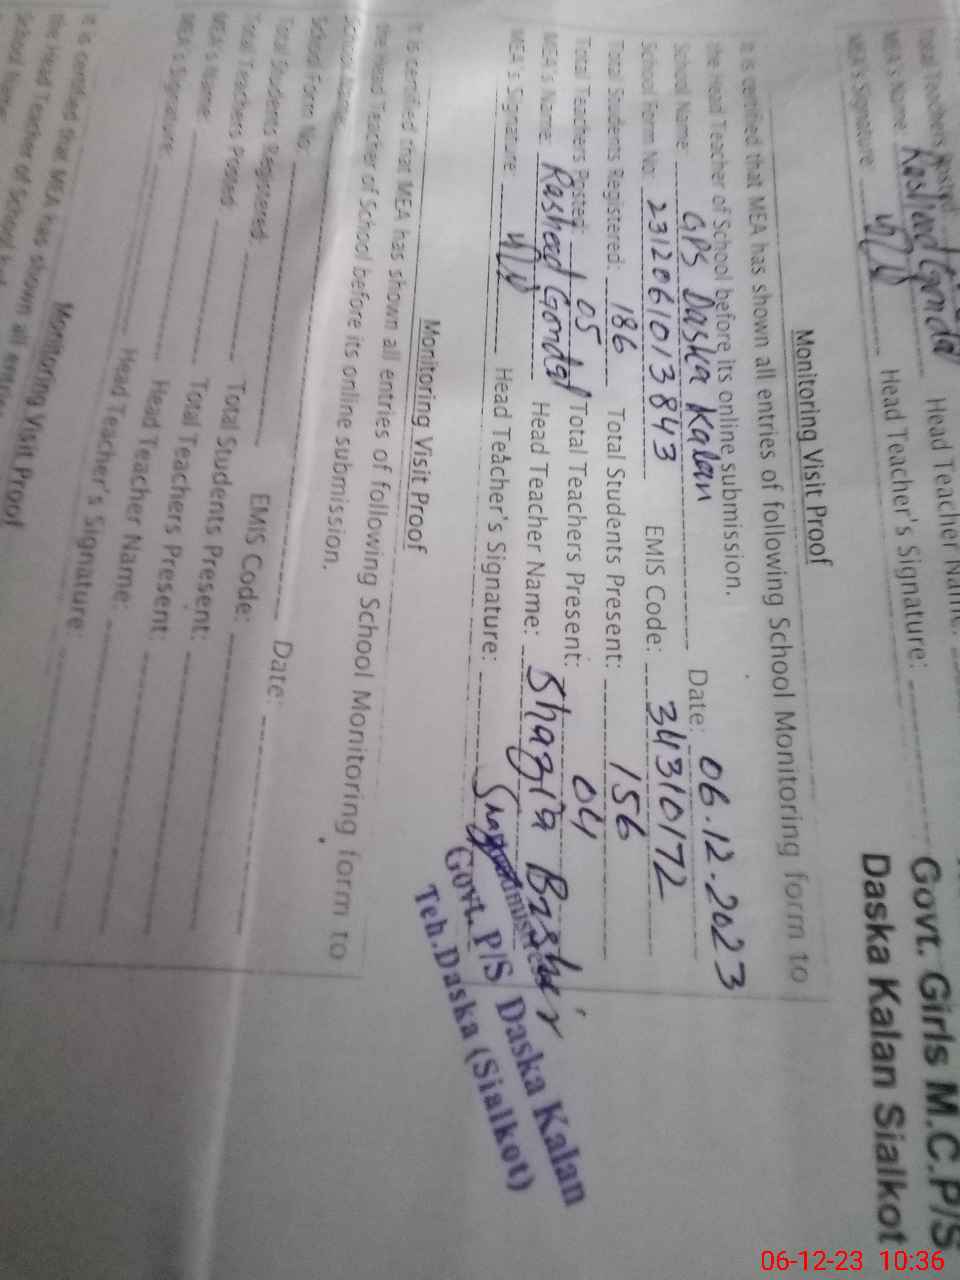 Total Teachers
MEA's Name: Rashed Gondal Head Teacher Name:
MEA's Signature: Head Teacher's Signature:
Govt. Girls M.C.P/S
Daska Kalan Sialkot
Monitoring Visit Proof
It is certified that MEA has shown all entries of following School Monitoring form to
the Head Teacher of School before its online submission.
School Name: GPS Daska Kalan Date: 06.12.2023
School Form No: 2312061013843 EMIS Code: 34310172
Total Students Registered: 186 Total Students Present: 156
Total Teachers Posted: 05 Total Teachers Present: 04
MEA's Name: Rashed Gondal Head Teacher Name: Shazia Bashir
MEA's Signature: Head Teacher's Signature:
Govt. P/S Daska Kalan
Teh.Daska (Sialkot)
Monitoring Visit Proof
It is certified that MEA has shown all entries of following School Monitoring form to
the Head Teacher of School before its online submission.
School Name: Date:
School Form No: EMIS Code:
Total Students Registered: Total Students Present:
Total Teachers Posted: Total Teachers Present:
MEA's Name: Head Teacher Name:
MEA's Signature: Head Teacher's Signature:
Monitoring Visit Proof
It is certified that MEA has shown all entries
the Head Teacher of School
School Name:
06-12-23 10:36